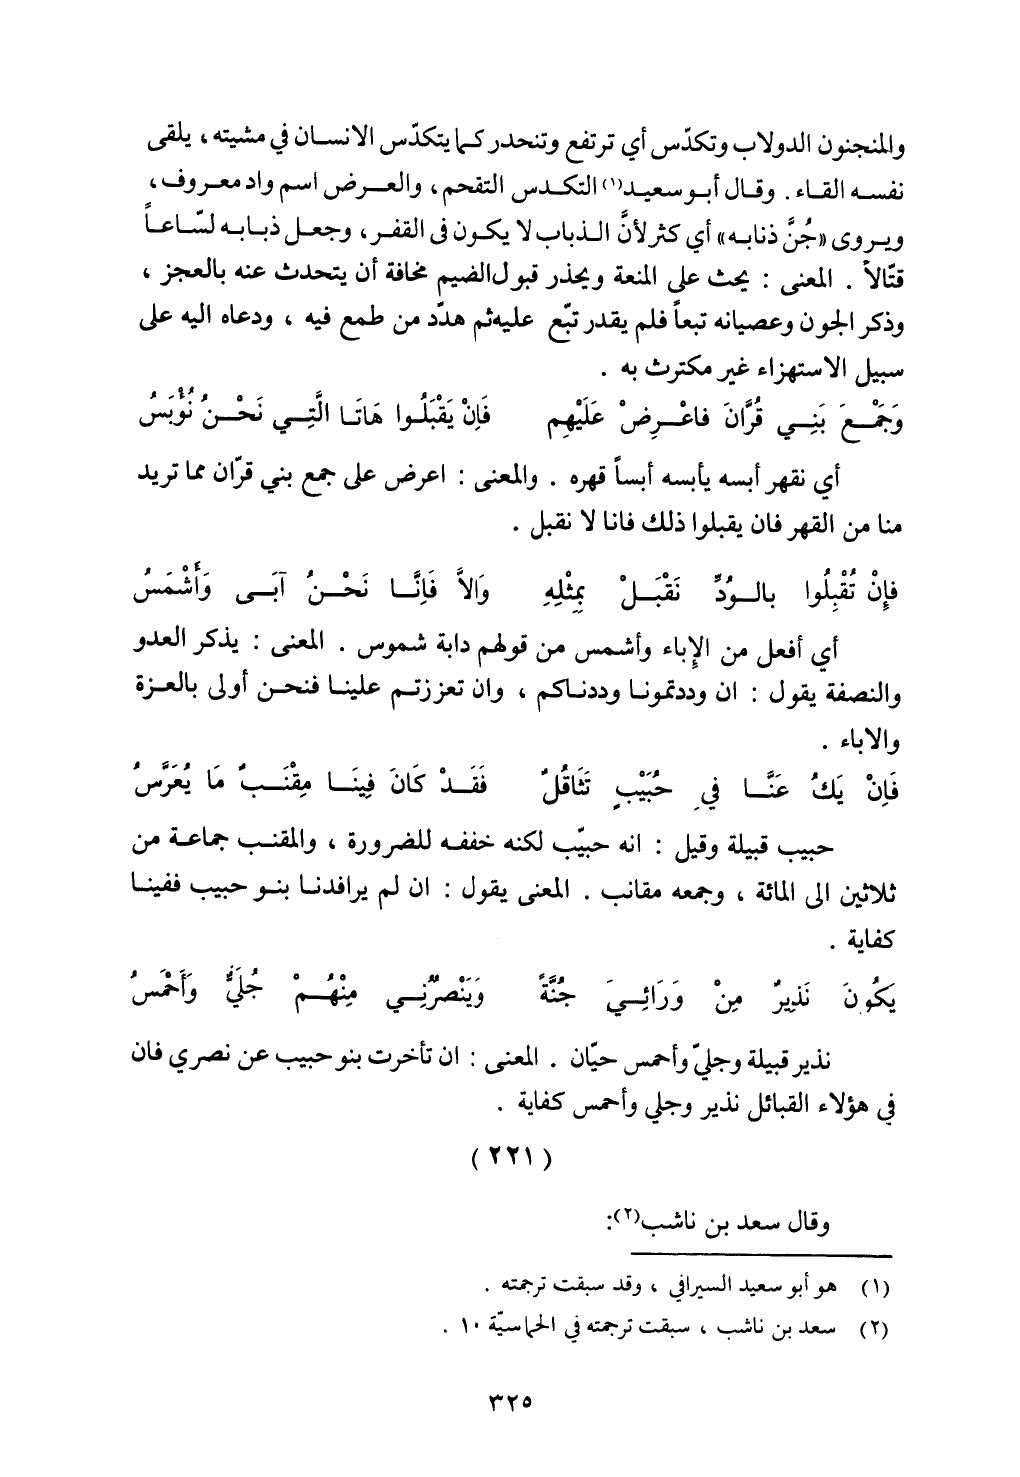 والمنجنون الدولاب وتكدّس أي ترتفع وتنحدر كما يتكدّس الانسان في مشيته ، يلقى
نفسه القاء . وقال أبو سعيد(١) التكدس التقحم ، والعرض اسم واد معروف ،
ويروى «جُنَّ ذنابه» أي كثر لأنَّ الذباب لا يكون فى القفر ، وجعل ذبابه لسّاعاً
قتّالاً . المعنى : يحث على المنعة ويحذر قبول الضيم مخافة أن يتحدث عنه بالعجز ،
وذكر الجون وعصيانه تبعاً فلم يقدر تبّع عليه ثم هدّد من طمع فيه ، ودعاه اليه على
سبيل الاستهزاء غير مكترث به .
وَجَمْعَ بَنِي قُرَّانَ فاعْرِضْ عَلَيْهِم فَاِنْ يَقْبَلُوا هَاتَا الَّتِي نَحْنُ نُؤْبَسُ
أي نقهر أبسه يأبسه أبساً قهره . والمعنى : اعرض على جمع بني قرّان مما تريد
منا من القهر فان يقبلوا ذلك فانا لا نقبل .
فإِنْ تُقْبِلُوا بالوُدِّ نَقْبَلْ بِمْثلِهِ وَالاَّ فَاِنَّا نَحْنُ آبَى وَأَشْمَسُ
أي أفعل من الإِباء وأشمس من قولهم دابة شموس . المعنى : يذكر العدو
والنصفة يقول : ان وددتمونا وددناكم ، وان تعززتم علينا فنحن أولى بالعزة
والاباء .
فَاِنْ يَكُ عَنَّا في حُبَيْبٍ تَثَاقُلٌ فَقَدْ كَانَ فِينَا مِقْنَبٌ مَا يُعَرَّسُ
حبيب قبيلة وقيل : انه حبيّب لكنه خففه للضرورة ، والمقنب جماعة من
ثلاثين الى المائة ، وجمعه مقانب . المعنى يقول : ان لم يرافدنا بنو حبيب ففينا
كفاية .
يَكُونَ نَذِيرٌ مِنْ وَرَائِيَ جُنَّةً وَيَنْصُرُنِي مِنْهُمْ جُلَيٌّ وَأَحْمَسُ
نذير قبيلة وجليّ وأحمس حيّان . المعنى : ان تأخرت بنو حبيب عن نصري فان
في هؤلاء القبائل نذير وجلي وأحمس كفاية .
(٢٢١)
وقال سعد بن ناشب(٢):
(١) هو أبو سعيد السيرافي ، وقد سبقت ترجمته .
(٢) سعد بن ناشب ، سبقت ترجمته في الحماسيّة ١٠ .
٣٢٥